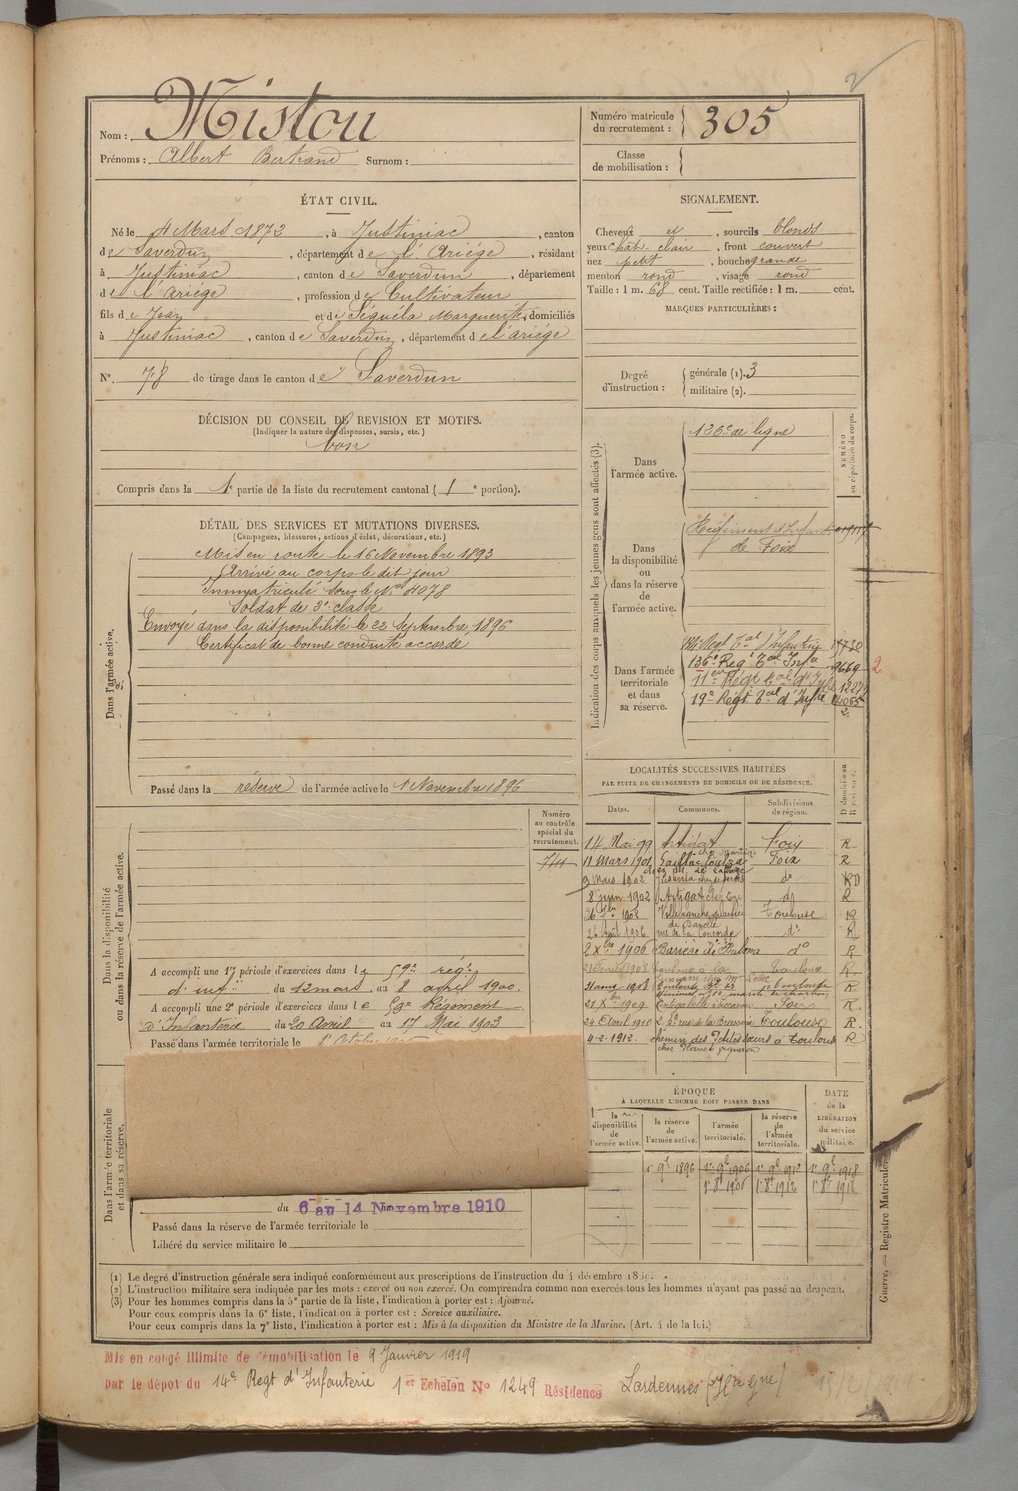 2
Nom : Mistou
Prénoms : Albert Bertrand Surnom :
Numéro matricule du recrutement : 305
Classe de mobilisation :
ÉTAT CIVIL.
Né le 4 Mars 1873, à Justiniac, canton
de Saverdun, département de l'Ariége, résidant
à Justiniac, canton de Saverdun, département
de l'Ariége, profession de Cultivateur
fils de Jean et de Séguela Marguerite, domiciliés
à Justiniac, canton de Saverdun, département de l'ariége
N° 78 de tirage dans le canton de Saverdun
SIGNALEMENT.
Cheveux et, sourcils blonds
yeux chât. clair, front couvert
nez petit, bouche grande
menton rond, visage rond
Taille : 1 m. 68 cent. Taille rectifiée : 1 m. cent.
MARQUES PARTICULIÈRES :
Degré d'instruction : générale (1). 3
militaire (2).
DÉCISION DU CONSEIL DE REVISION ET MOTIFS.
(Indiquer la nature des dispenses, sursis, etc.)
bon
Compris dans la 1e partie de la liste du recrutement cantonal (1e portion).
DÉTAIL DES SERVICES ET MUTATIONS DIVERSES.
(Campagnes, blessures, actions d'éclat, décorations, etc.)
Dans l'armée active.
Mis en route le 16 Novembre 1893
Arrivé au corps le dit jour
Immatriculé sous le No 4078
Soldat de 2e classe
Envoyé dans la disponibilité le 22 Septembre 1896
Certificat de bonne conduite accordé
Passé dans la réserve de l'armée active le 1 Novembre 1896
Indication des corps auxquels les jeunes gens sont affectés (3).
NUMÉRO au répertoire du corps.
Dans l'armée active.
126e de ligne
Dans la disponibilité ou dans la réserve de l'armée active.
Régiment d'Infant.
de Foix
Dans l'armée territoriale et dans sa réserve.
134 Regt Tal d'Infanterie
136e Regt Tal Infie 9669 2
11e Régt tal d'Infie
19e Régt Tal d'Infie
LOCALITÉS SUCCESSIVES HABITÉES
PAR SUITE DE CHANGEMENTS DE DOMICILE OU DE RÉSIDENCE.
Dates. Communes. Subdivisions de région.
14 Mai 99 Artigat Foix R
11 Mars 1901 Foix R
9 Mars 1902 do
8 juin 1902 Artigat do R
Toulouse R
rue de la Concorde do R
2 Xbre 1906 Barrière de do R
21 Février 1908 Toulouse R.
Toulouse R
21 Xbre 1909 Foix R.
24 Avril 1910 rue de la Brasserie Toulouse R.
4-2-1912. chemin des Petites Toulouse R
Numéro au contrôle spécial du recrutement.
Dans la disponibilité ou dans la réserve de l'armée active.
A accompli une 1e période d'exercices dans le 59e régt
d'inf. du 12 mars au 8 avril 1900.
A accompli une 2e période d'exercices dans le 59e Régiment
d'Infanterie du 20 Avril au 17 Mai 1903
Passé dans l'armée territoriale le
Dans l'armée territoriale et dans sa réserve.
du 6 au 14 Novembre 1910
Passé dans la réserve de l'armée territoriale le
Libéré du service militaire le
ÉPOQUE
À LAQUELLE L'HOMME DOIT PASSER DANS
DATE de la LIBÉRATION du service militaire.
la disponibilité de l'armée active. la réserve de l'armée active. l'armée territoriale. la réserve de l'armée territoriale.
1er 9bre 1896 1er 9bre 1906 1er 9bre 1912 1er 9bre 1918
1er 8bre 1906 1er 8bre 1912 1er 8bre 1918
Guerre. — Registre Matricule
(1) Le degré d'instruction générale sera indiqué conformément aux prescriptions de l'instruction du 4 décembre
(2) L'instruction militaire sera indiquée par les mots : exercé ou non exercé. On comprendra comme non exercés tous les hommes n'ayant pas passé au drapeau.
(3) Pour les hommes compris dans la 5e partie de la liste, l'indication à porter est : Ajourné.
Pour ceux compris dans la 6e liste, l'indication à porter est : Service auxiliaire.
Pour ceux compris dans la 7e liste, l'indication à porter est : Mis à la disposition du Ministre de la Marine. (Art. 4 de la loi.)
Mis en congé illimité de démobilisation le 9 Janvier 1919
par le dépôt du 14e Regt d'Infanterie 1er Echelon No 1249 Résidence Lardennes